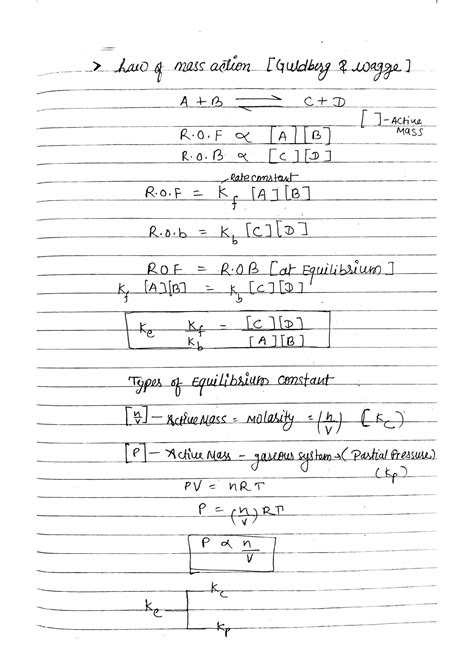 > Law of mass action [Guldberg & Wagge]
A + B ⇌ C + D
[ ] - Active Mass
R.O.F ∝ [A][B]
R.O.B ∝ [C][D]
Rate constant
R.O.F = K_f [A][B]
R.O.b = K_b [C][D]
ROF = R.OB [at Equilibrium]
K_f [A][B] = K_b [C][D]
K_e K_f/K_b = [C][D]/[A][B]
Types of Equilibrium constant
[n/V] - Active Mass = Molarity = (n/V) (K_C)
[P] - Active Mass - gaseous system → (Partial Pressure) (K_p)
PV = nRT
P = (n/V) RT
P ∝ n/V
K_C
K_e
K_p